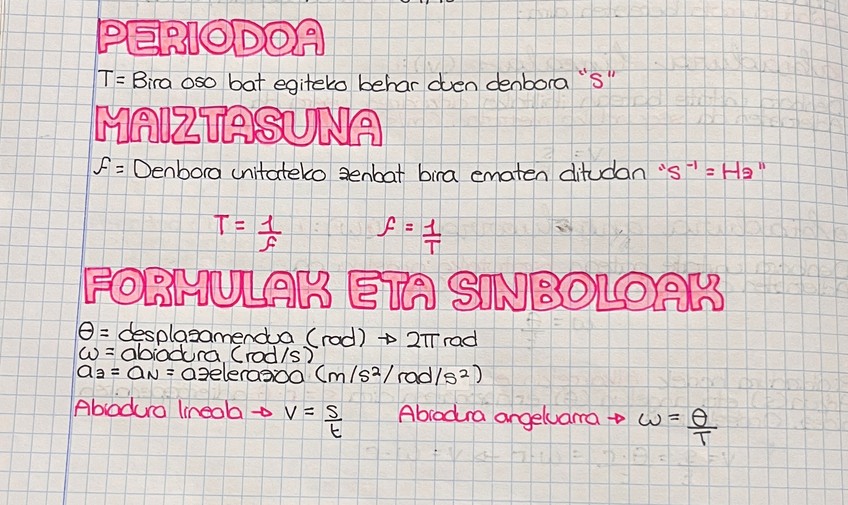 PERIODOA
T = Bira oso bat egiteko behar duen denbora "s"
MAIZTASUNA
f = Denbora unitateko zenbat bira ematen ditudan "s⁻¹ = Hz"
T = 1/f f = 1/T
FORMULAK ETA SINBOLOAK
θ = desplazamendua (rad) → 2π rad
ω = abiadura (rad/s)
az = aN = azelerazioa (m/s²/rad/s²)
Abiadura lineala → v = s/t Abiadura angeluarra → ω = θ/T